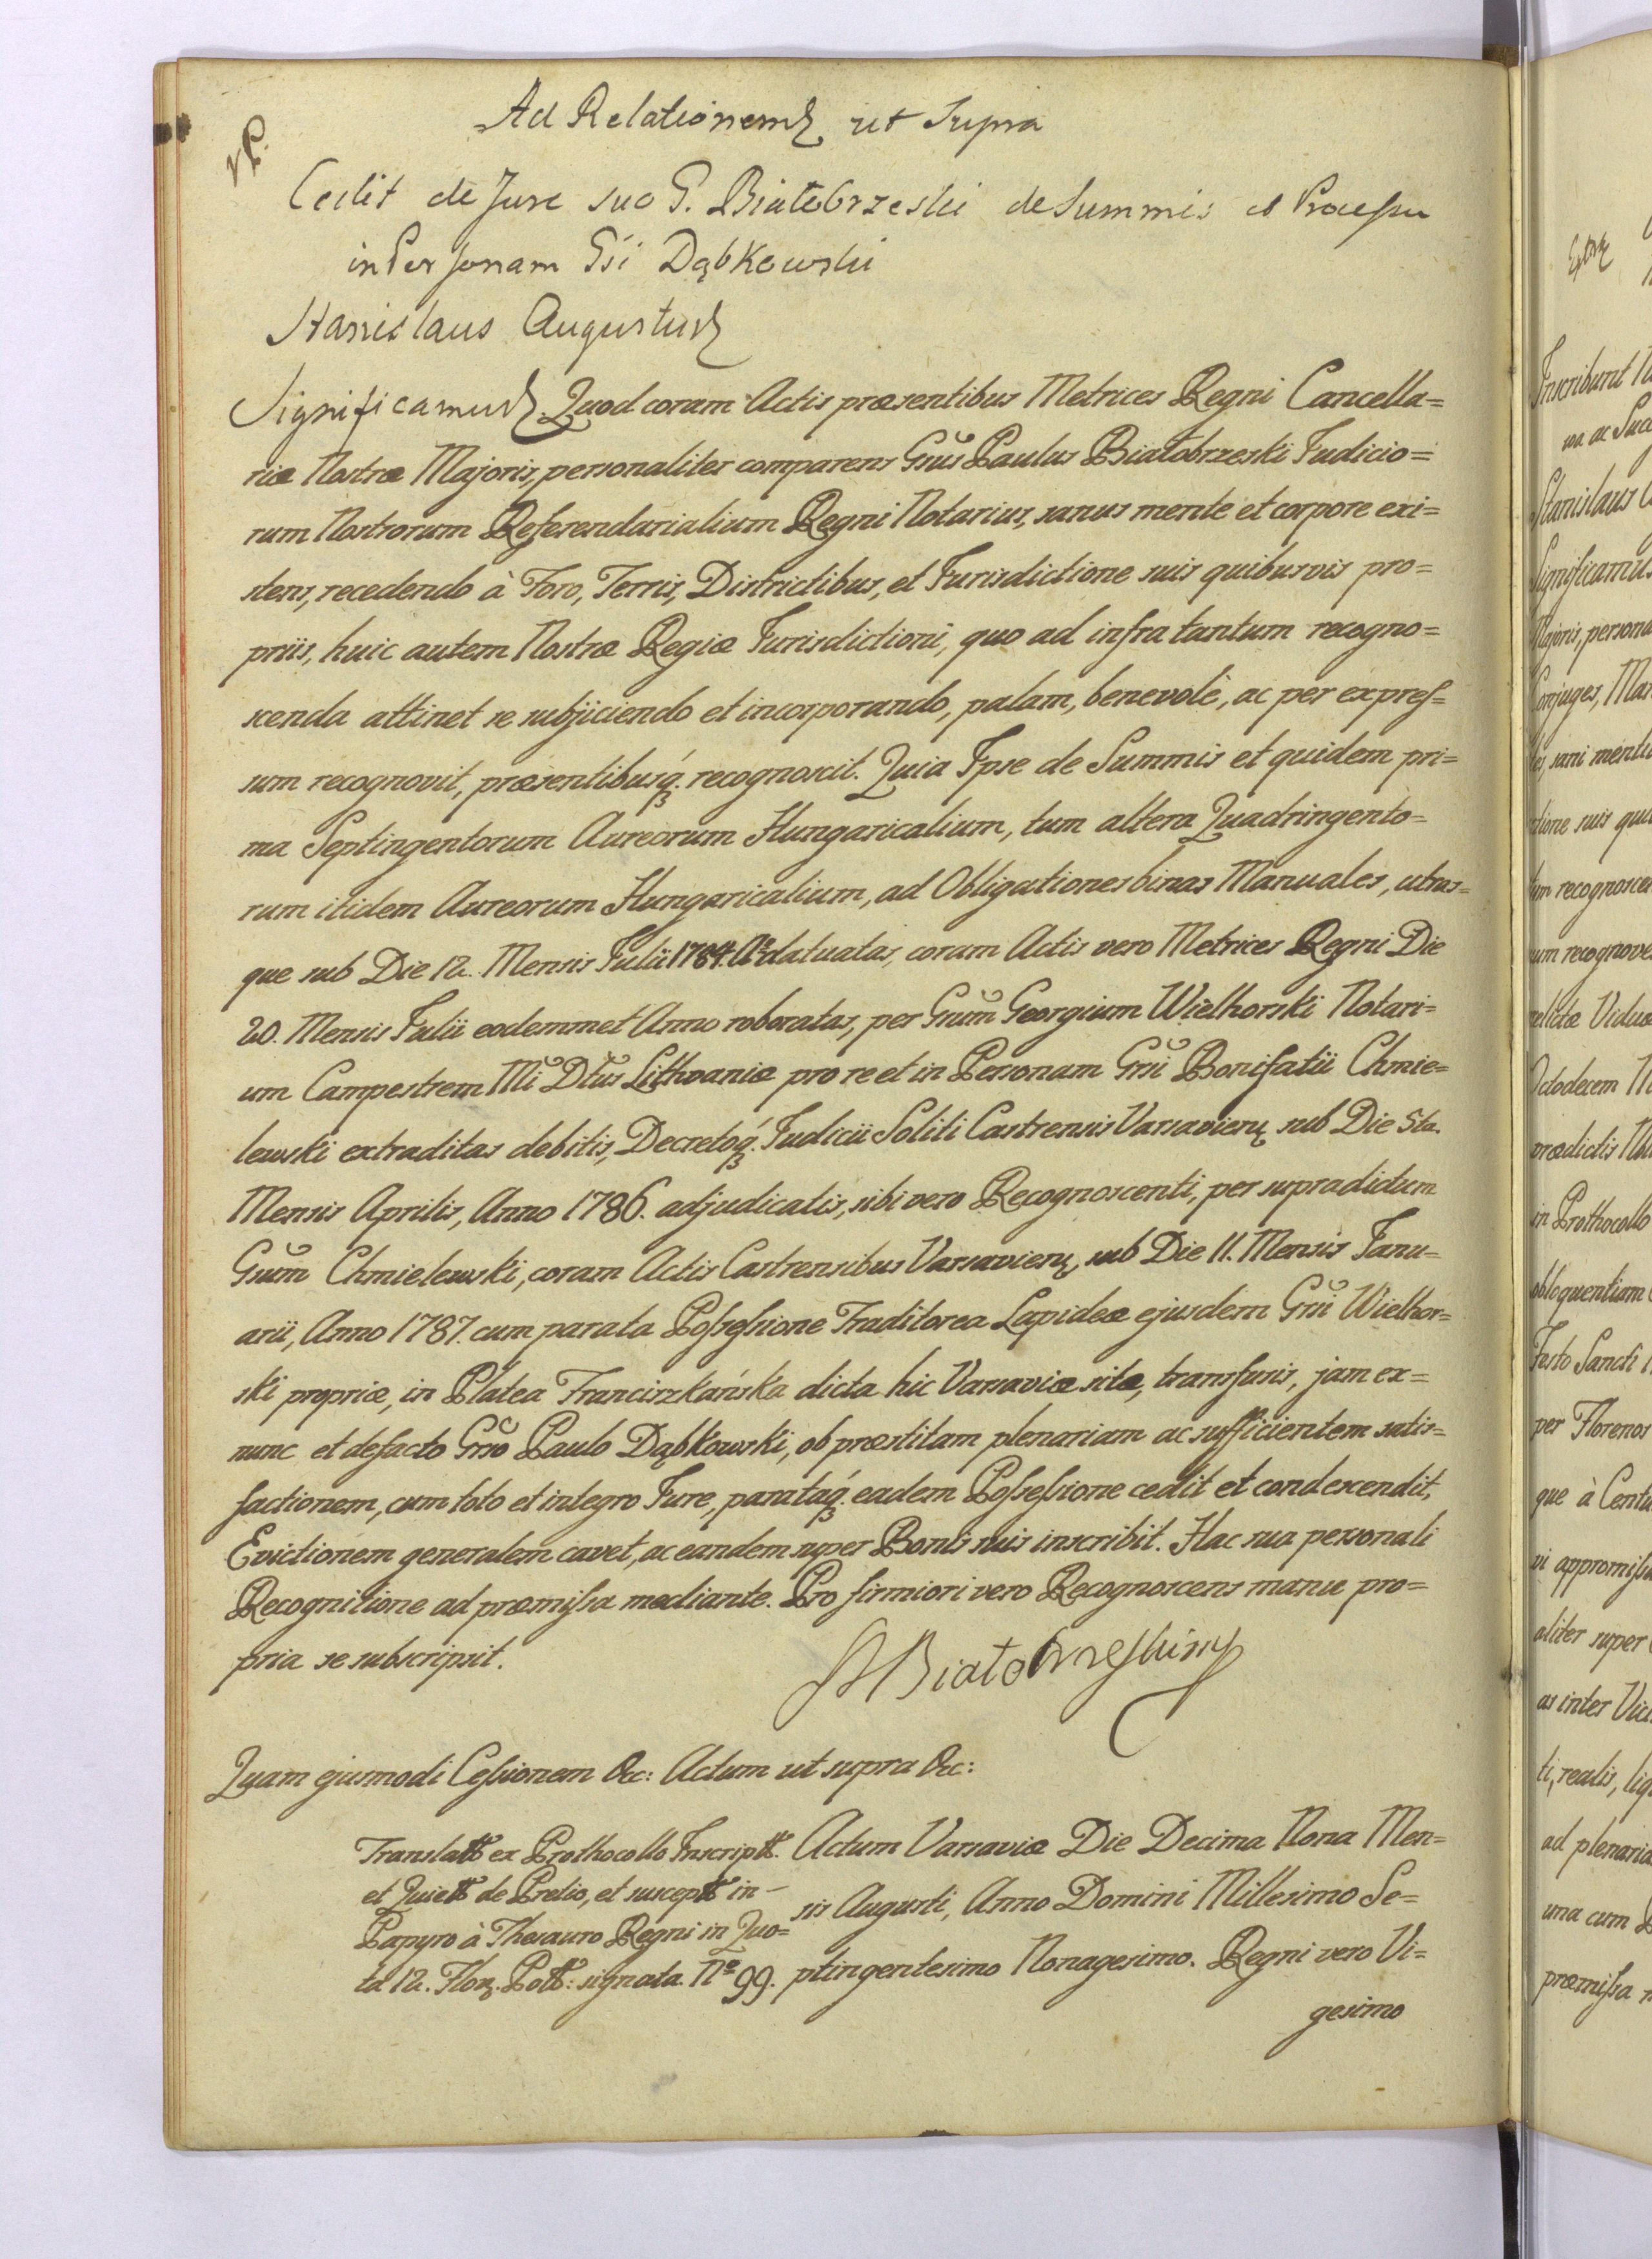 Ad Relationem ut Supra
Cedit de Jure suo G. Białobrzeski de Summis et Processu
in Personam Gsi Dąbkowski
Stanislaus Augustus
Significamus. Quod coram Actis præsentibus Metrices Regni Cancella=
riæ Nostræ Majoris, personaliter comparens Gsus Paulus Białobrzeski Judicio=
rum Nostrorum Referendarialium Regni Notarius, sanus mente et corpore exi=
stens, recedendo à Foro, Terris, Districtibus, et Jurisdictione suis quibusvis pro=
priis, huic autem Nostræ Regiæ Jurisdictioni, quo ad infra tantum recogno=
scenda attinet se subjiciendo et incorporando, palam, benevolè, ac per expreſ=
sum recognovit, præsentibusq́ꝫ. recognoscit. Quia Ipse de Summis et quidem pri=
ma Septingentorum Aureorum Hungaricalium, tum altera Quadringento=
rum itidem Aureorum Hungaricalium, ad Obligationes binas Manuales, utras=
que sub Die 12. Mensis Julii 1784. Aº datuatas, coram Actis vero Metrices Regni Die
20. Mensis Julii eodemmet Anno roboratas, per Gsum Georgium Wielhorski Notari=
um Campestrem Mi Dtus Lithvaniæ pro re et in Personam Gsi Bonifatii Chmie=
lewski extraditas debitis, Decretoq́ꝫ. Judicii Soliti Castrensis Varsavien̄ sub Die 5ta.
Mensis Aprilis, Anno 1786. adjudicatis, sibi vero Recognoscenti, per supradictum
Gsum Chmielewski, coram Actis Castrensibus Varsavien̄, sub Die 11. Mensis Janu=
arii, Anno 1787. cum parata Poſseſsione Traditorea Lapideæ ejusdem Gsi Wielhor=
ski propriæ, in Platea Franciszkańska dicta hic Varsaviæ sitæ, transfusis, jam ex=
nunc et defacto Gso Paulo Dąbkowski, ob præstitam plenariam ac sufficientem satis=
factionem, cum toto et integro Jure, parataq́ꝫ. eadem Poſseſsione cedit et condescendit,
Evictionem generalem cavet, ac eandem super Bonis suis inscribit. Hac sua personali
Recognitione ad præmiſsa mediante. Pro firmiori vero Recognoscens manu pro=
pria se subscripsit.
Quam ejusmodi Ceſsionem &c: Actum ut supra &c:
Translatt ex Prothocollo Inscriptt.
et Quiett de Pretio, et susceptt in-
Papyro à Thesauro Regni in Quo=
ta 12. Flor. Poll: signata Nº 99.
Actum Varsaviæ Die Decima Nona Men=
sis Augusti, Anno Domini Millesimo Se=
ptingentesimo Nonagesimo. Regni vero Vi=
gesimo